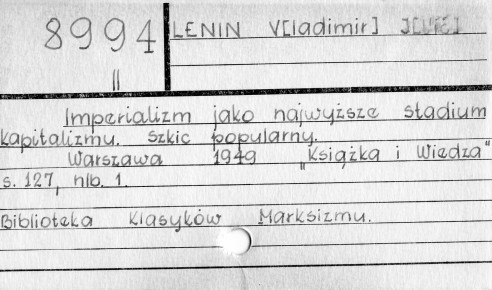 8994
II
LENIN V[ladimir]
Imperializm jako najwyższe stadium
kapitalizmu. Szkic popularny.
Warszawa 1949 "Książka i Wiedza"
s. 127, nlb. 1.
Biblioteka Klasyków Marksizmu.